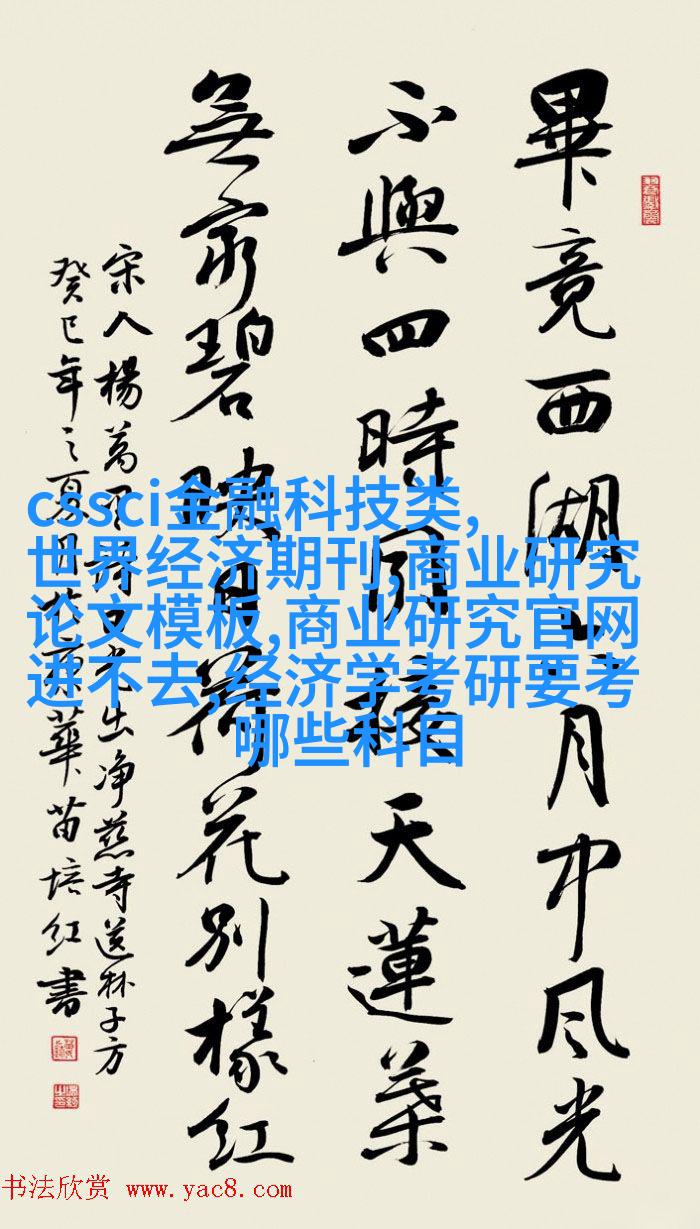 畢竟西湖六月中風光
不與四時同接天蓮葉
無窮碧映日荷花別樣紅
宋人楊萬里詩曉出净慈寺送林子方
癸巳年之夏月於京華苗培红書
cssci金融科技类,
世界经济期刊,商业研究
论文模板,商业研究官网
进不去,经济学考研要考
哪些科目
书法欣赏 www.yac8.com